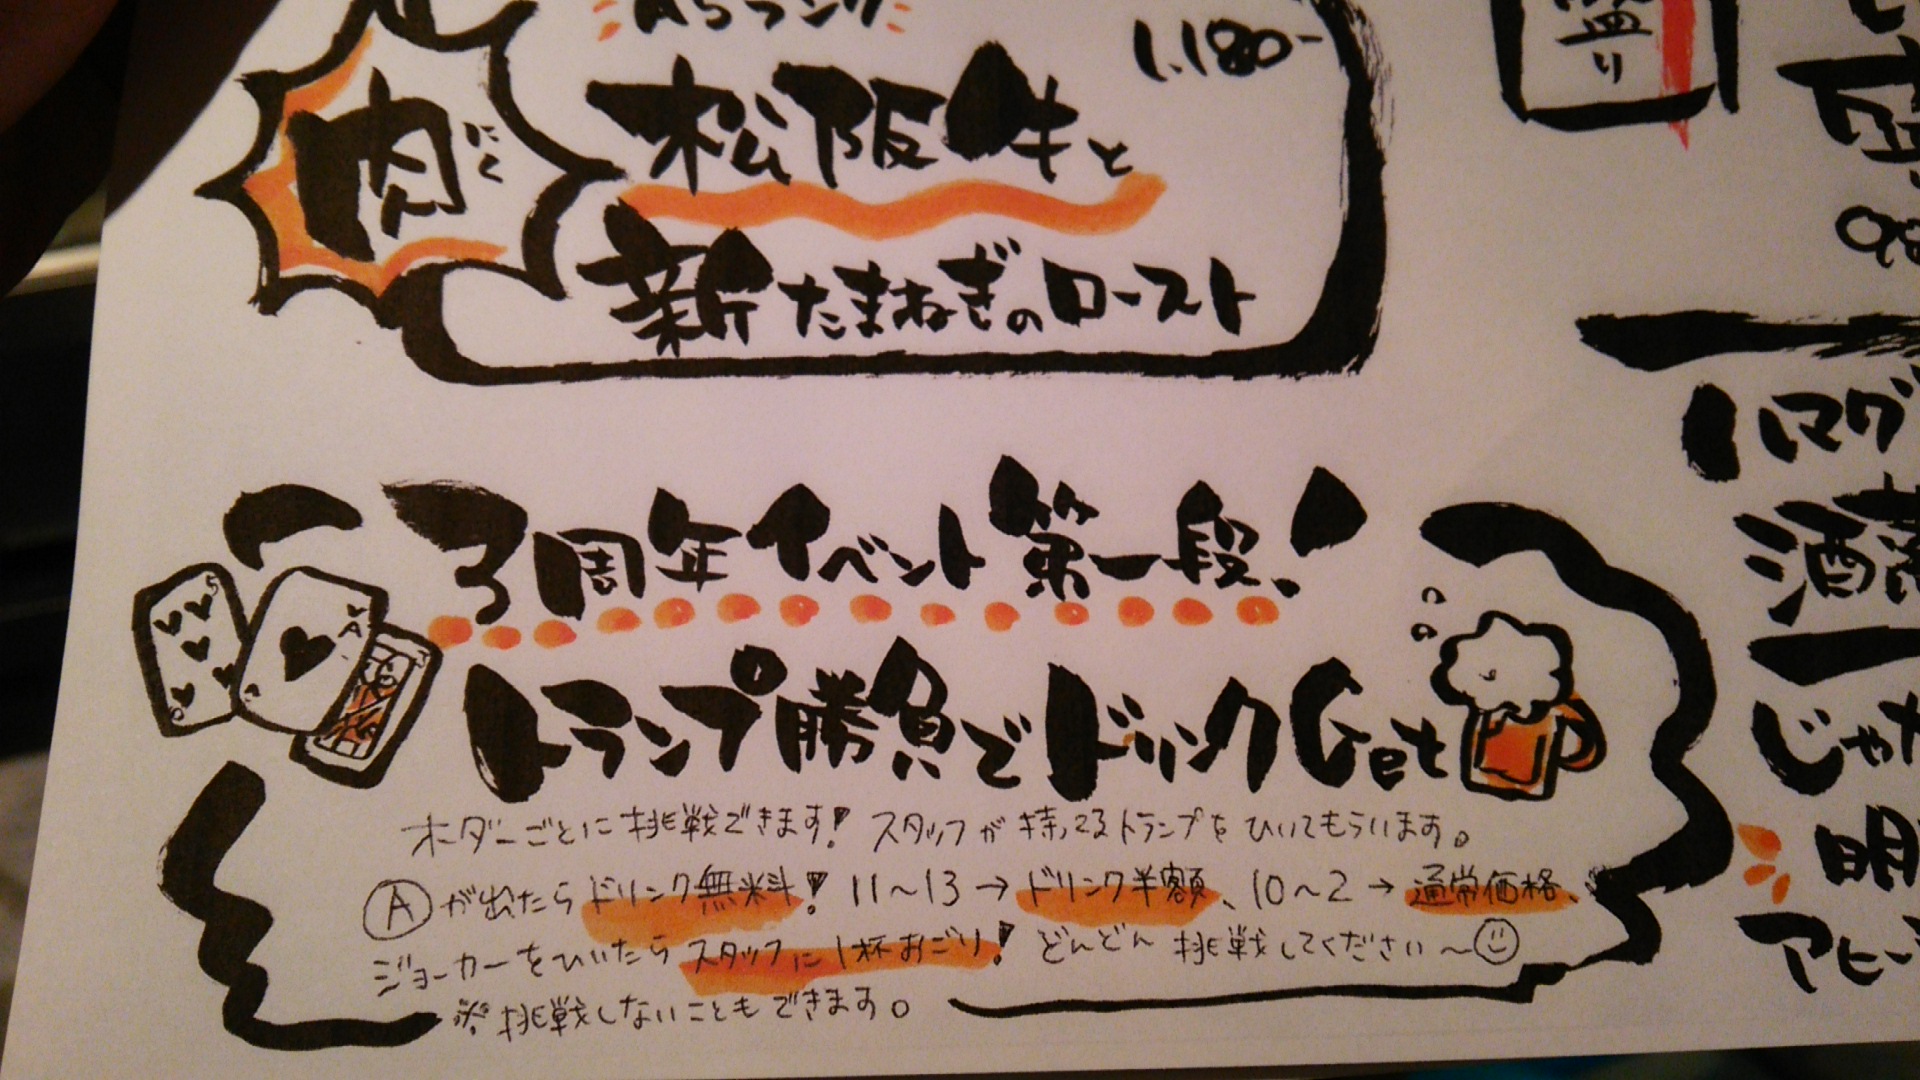 A5ランク
1,180-
肉
にく
松阪牛と
新たまねぎのロースト
盛り
3周年イベント第一段!
トランプ勝負でドリンクGet
オーダーごとに挑戦できます! スタッフが持ってるトランプをひいてもらいます。
Aが出たらドリンク無料! 11~13→ドリンク半額、10~2→通常価格、
ジョーカーをひいたらスタッフに1杯おごり! どんどん挑戦してください~
※挑戦しないこともできます。
マグ
酒
じゃ
明
アヒー